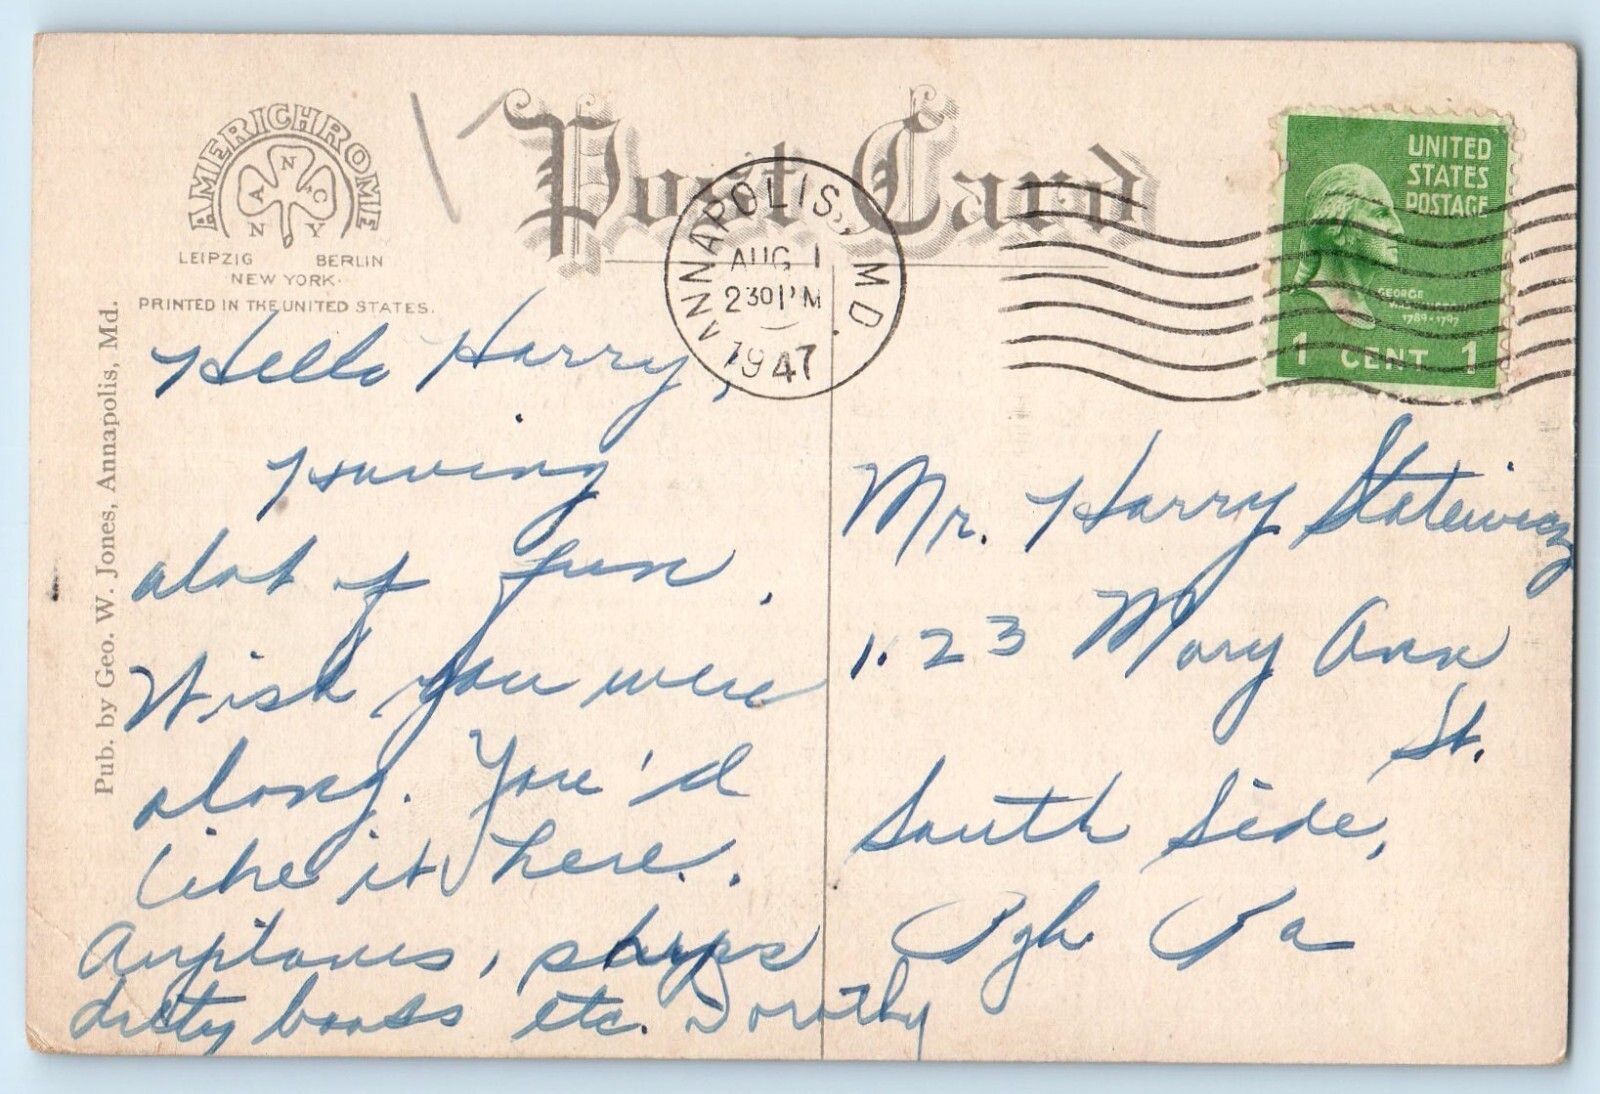 AMERICHROME
A N C
N & Y
LEIPZIG BERLIN
NEW YORK.
PRINTED IN THE UNITED STATES.
Post Card
ANNAPOLIS, MD.
AUG 1
2 30 PM
1947
UNITED
STATES
POSTAGE
GEORGE
WASHINGTON
1789-1797
1 CENT 1
Pub. by Geo. W. Jones, Annapolis, Md.
Hello Harry,
Having
alot of fun.
Wish you were
along. You'd
like it here.
Airplanes, ships
boats etc. Dorothy
Mr. Harry Statewicz
123 Mary Ann
St.
South Side,
Pgh. Pa